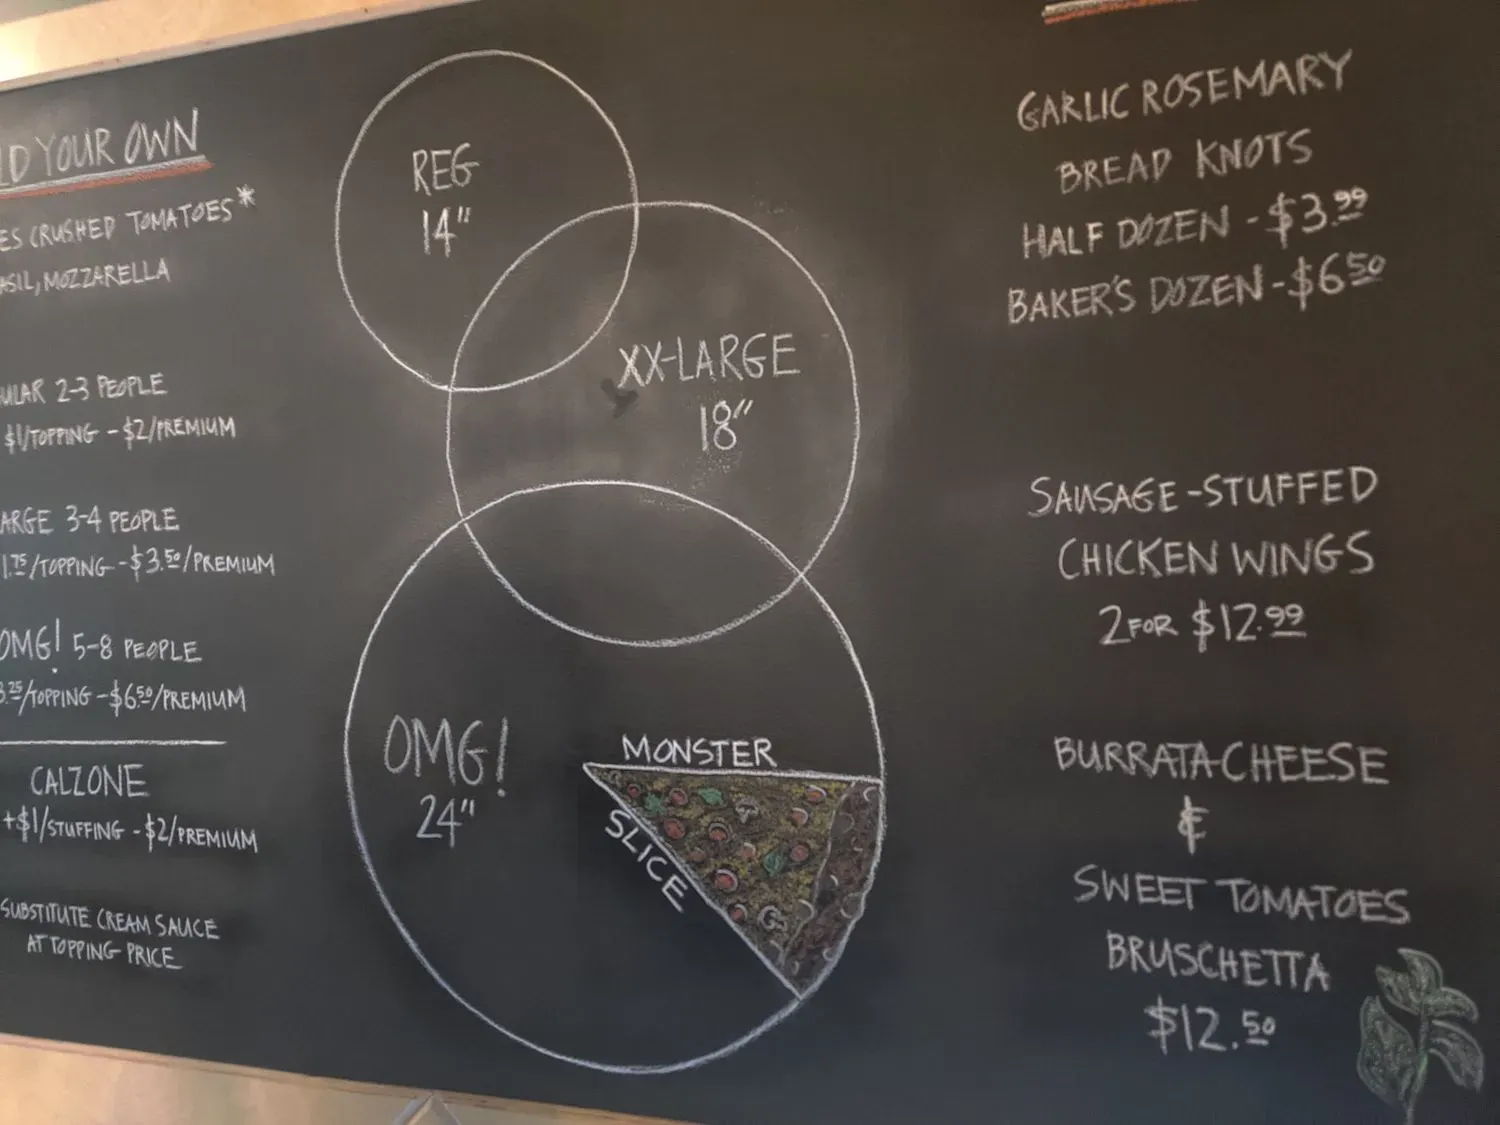 LD YOUR OWN
ES CRUSHED TOMATOES*
ASIL, MOZZARELLA
ULAR 2-3 PEOPLE
$1/TOPPING - $2/PREMIUM
ARGE 3-4 PEOPLE
1.75/TOPPING - $3.50/PREMIUM
OMG! 5-8 PEOPLE
3.25/TOPPING - $6.50/PREMIUM
CALZONE
+$1/STUFFING - $2/PREMIUM
SUBSTITUTE CREAM SAUCE
AT TOPPING PRICE
REG
14"
XX-LARGE
18"
OMG!
24"
MONSTER
SLICE
GARLIC ROSEMARY
BREAD KNOTS
HALF DOZEN - $3.99
BAKER'S DOZEN - $6.50
SAUSAGE-STUFFED
CHICKEN WINGS
2 FOR $12.99
BURRATA CHEESE
&
SWEET TOMATOES
BRUSCHETTA
$12.50